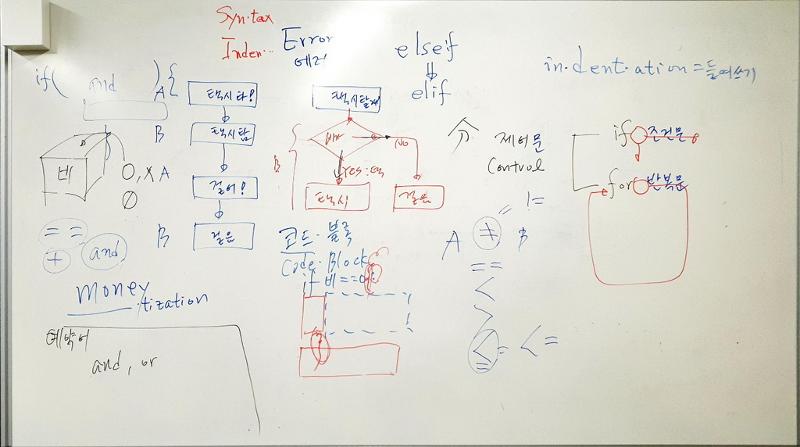 Syntax
Inden...
Error
에러
elseif
elif
in·dent·ation = 들여쓰기
if( and ) {
A
B
A
B
택시타!
택시탐
걸어!
걸음
비
O, X
==
+
and
money
tization
예약어
and, or
B
NO
YES
택시
걸음
코드·블록
Code·Block
if 비==ok
제어문
Control
!=
A + B
==
<
>
<= <=
if 조건문
for 반복문